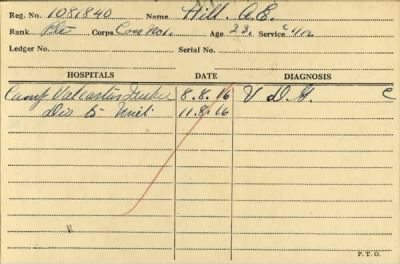 Reg. No. 1081840 Name Hill. A.E.
Rank Pte Corps Con. Nor. Age 23. Service 4/12
Ledger No. Serial No.
HOSPITALS DATE DIAGNOSIS
Camp Valcartier Quebec 8.8.16 V D.G. C
Dis to Unit 11.8.16
P. T. O.